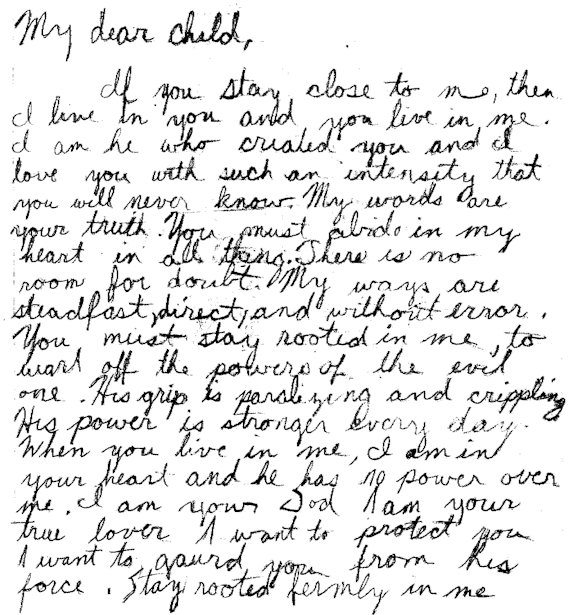 My dear child,
If you stay close to me, then
I live in you and you live in me.
I am he who created you and I
love you with such an intensity that
you will never know. My words are
your truth. You must abide in my
heart in all thing. There is no
room for doubt. My ways are
steadfast, direct, and without error.
You must stay rooted in me, to
ward off the powers of the evil
one. His grip is paralizing and crippling
His power is stronger every day.
When you live in me, I am in
your heart and he has no power over
me. I am your God I am your
true lover I want to protect you
I want to gaurd you from his
force. Stay rooted fermly in me